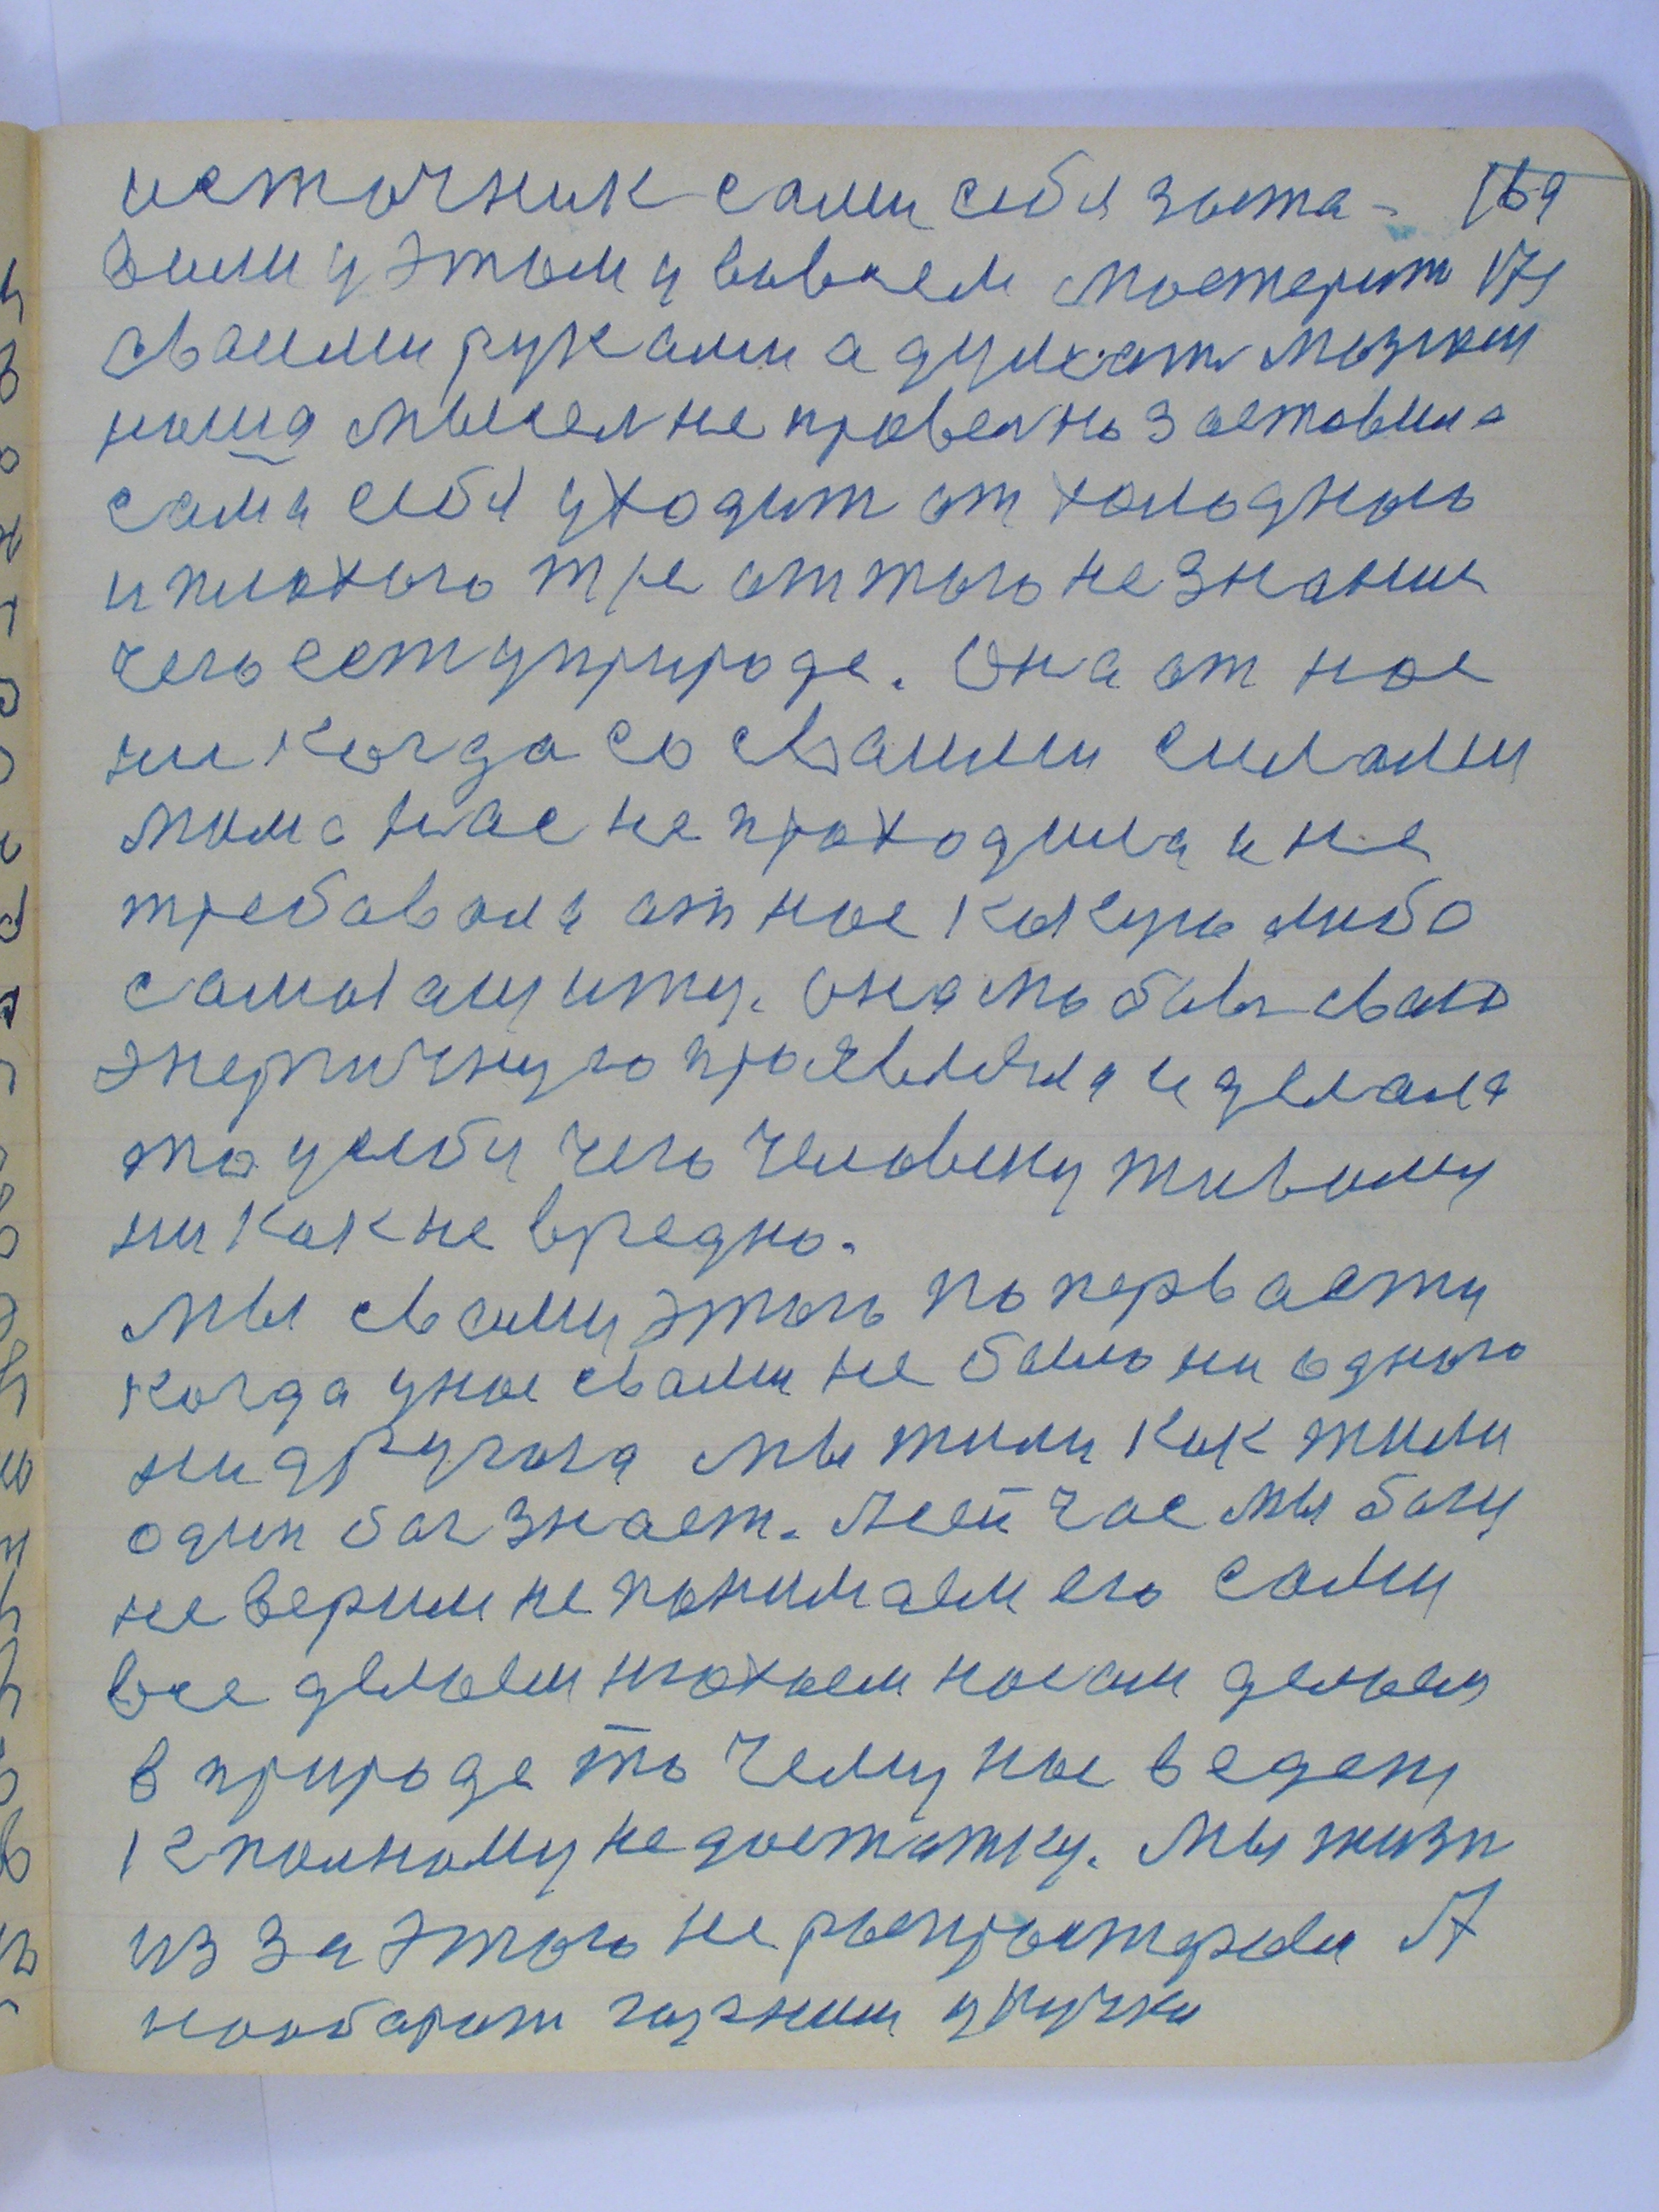 источник сами себя заста- 169
вили у этому во всем мастерит 171
сваими руками а думать мозгам
наша мысел не правелно заставила
сама себя уходит от холодного
и плохого тре от того не знания
чего ест у природе. Она от нас
ни когда со сваими силами
мима нас не проходила и не
требавала от нас какую либо
самозащиту. Она любовь сваю
энергичную праевляла и делала
то у себя чего человеку живому
ни как не вредно.
мы с вами этого по первасти
когда у нас с вами не было ни одного
ни другога мы жили как жили
один бог знает. А сейчас мы богу
не верим не понимаем его сами
все делаем нюхаем носам делаем
в природе то чему нас ведет
к полному недостатку. Мы жизн
из за этого не распрастраели А
наобарот